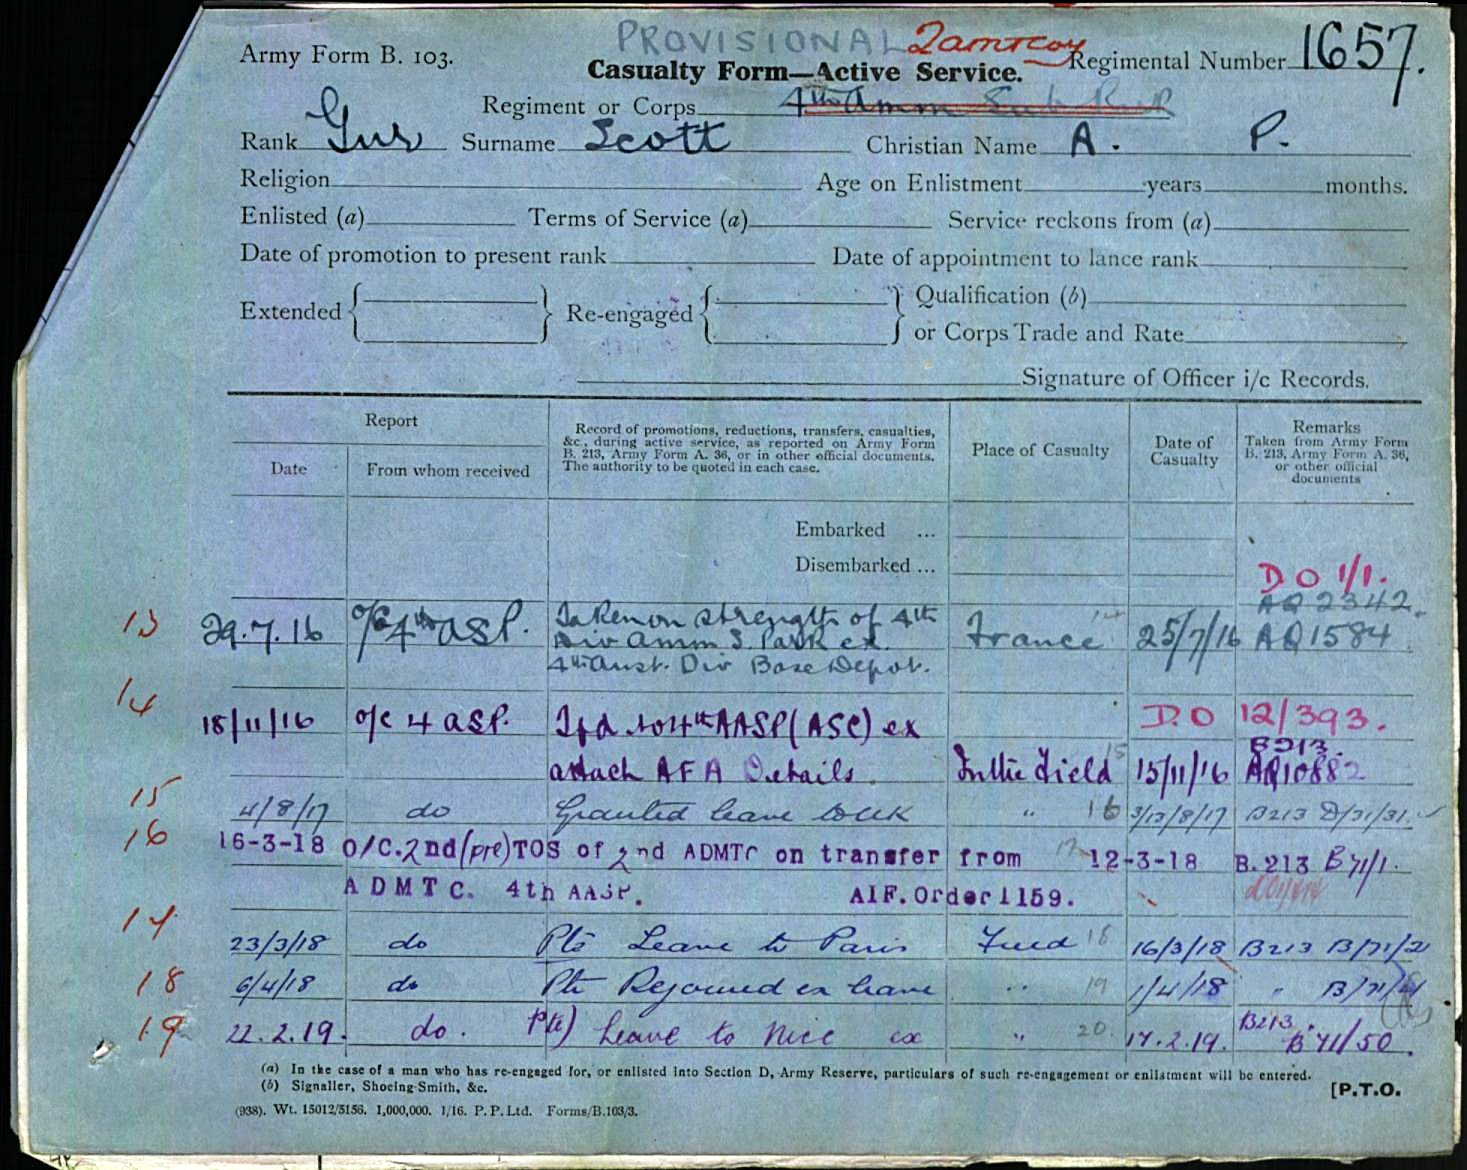 PROVISIONAL 2amtcoy
Army Form B. 103.
Casualty Form—Active Service.
Regimental Number 1657.
Regiment or Corps 4th Amm Sub Park
Rank Gnr Surname Scott Christian Name A. P.
Religion Age on Enlistment years months.
Enlisted (a) Terms of Service (a) Service reckons from (a)
Date of promotion to present rank Date of appointment to lance rank
Extended Re-engaged Qualification (b)
or Corps Trade and Rate
Signature of Officer i/c Records.
Report
Date From whom received
Record of promotions, reductions, transfers, casualties,
&c., during active service, as reported on Army Form
B. 213, Army Form A. 36, or in other official documents.
The authority to be quoted in each case.
Place of Casualty
Date of
Casualty
Remarks
Taken from Army Form
B. 213, Army Form A. 36,
or other official
documents
Embarked ...
Disembarked ...
D O 1/1.
AQ 2342.
13 29.7.16 o/c 4th ASP. Taken on strength of 4th
Div Amm S. Park ex.
4th Aust. Div Base Depot.
France 14 25/7/16 AQ1584
14 18/11/16 o/c 4 ASP. Tfd to 4th AASP (ASC) ex
D.O 12/393.
B213.
attach AFA Details In the Field 15 15/11/16 AQ10882
15 4/8/17 do Granted leave to UK " 16 3/13/8/17 B213 D/31/31.
16 16-3-18 O/C.2nd(pre)TOS of 2nd ADMTC on transfer from 17 12-3-18 B.213 B71/1.
ADMTC. 4th AASP. AIF.Order1159.
17 23/3/18 do Pte Leave to Paris Field 18 16/3/18 B213 B/71/2
18 6/4/18 do Pte Rejoined ex leave " 19 1/4/18 " B/71/4
19 22.2.19. do. Pte) Leave to Nice ex " 20 17.2.19. B213. B71/50.
(a) In the case of a man who has re-engaged for, or enlisted into Section D, Army Reserve, particulars of such re-engagement or enlistment will be entered.
(b) Signaller, Shoeing-Smith, &c.
[P.T.O.
(938). Wt. 15012/5156. 1,000,000. 1/16. P.P.Ltd. Forms/B.103/3.